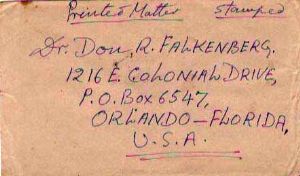 Printed Matter Stamped
Dr. Don, R. FALKENBERG.
1216 E. COLONIAL DRIVE,
P.O. Box 6547,
ORLANDO-FLORIDA,
U.S.A.